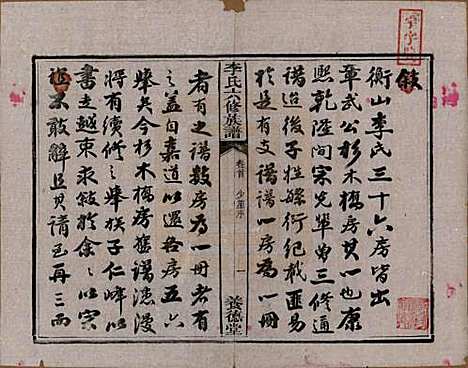 敘
衡山李氏三十六房皆出
章武公杉木橋房其一也康
熙乾隆間宋先輩曾三修通
譜迨後子姓繇衍紀載匪易
於是有支譜譜一房為一冊
李氏六修族譜
卷首
序
一
養德堂
者有之譜數房為一冊者有
之蓋自嘉道以還各房五六
舉矣今杉木橋房舊譜漶漫
將有續修之舉族子仁峰以
書走越東求敘於余余以宗
誼不敢辭且其請至再三而